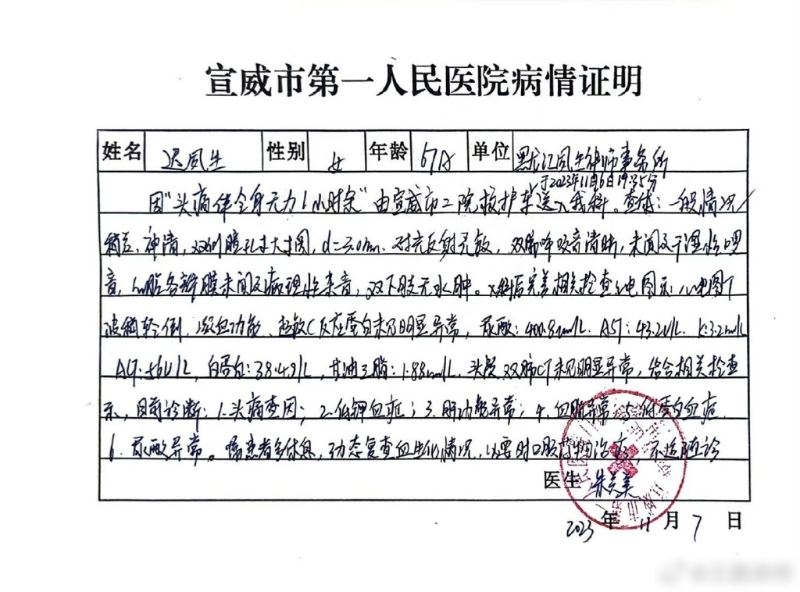 宣威市第一人民医院病情证明
姓名 迟凤生 性别 女 年龄 67岁 单位 黑龙江凤生律师事务所
于2023年11月6日19时5分
因“头痛伴全身无力1小时余”由宣威市二院救护车送入我科。查体:一般情况
神清,双侧瞳孔等大等圆,d=3.0mm,对光反射灵敏,双肺呼吸音清晰,未闻及干湿性啰
音,心脏各瓣膜未闻及病理性杂音,双下肢无水肿。入科后完善相关检查:心电图示:心电图T
波 ,凝血功能、超敏C反应蛋白未见明显异常,尿酸:400.8 /L. AST:43.2U/L. K:3.2 /L
ALT:56U/L,白蛋白:38.4g/L,甘油三脂:1.88 /L.头颅、双肺CT未见明显异常,结合相关检查
示,目前诊断:1.头痛查因;2.低钾血症;3.肝功能异常;4.血脂异常;5.低蛋白血症
6.尿酸异常。嘱患者多休息,动态复查血生化情况,必要时口服药物治疗,不适随诊
医生
2023年11月7日